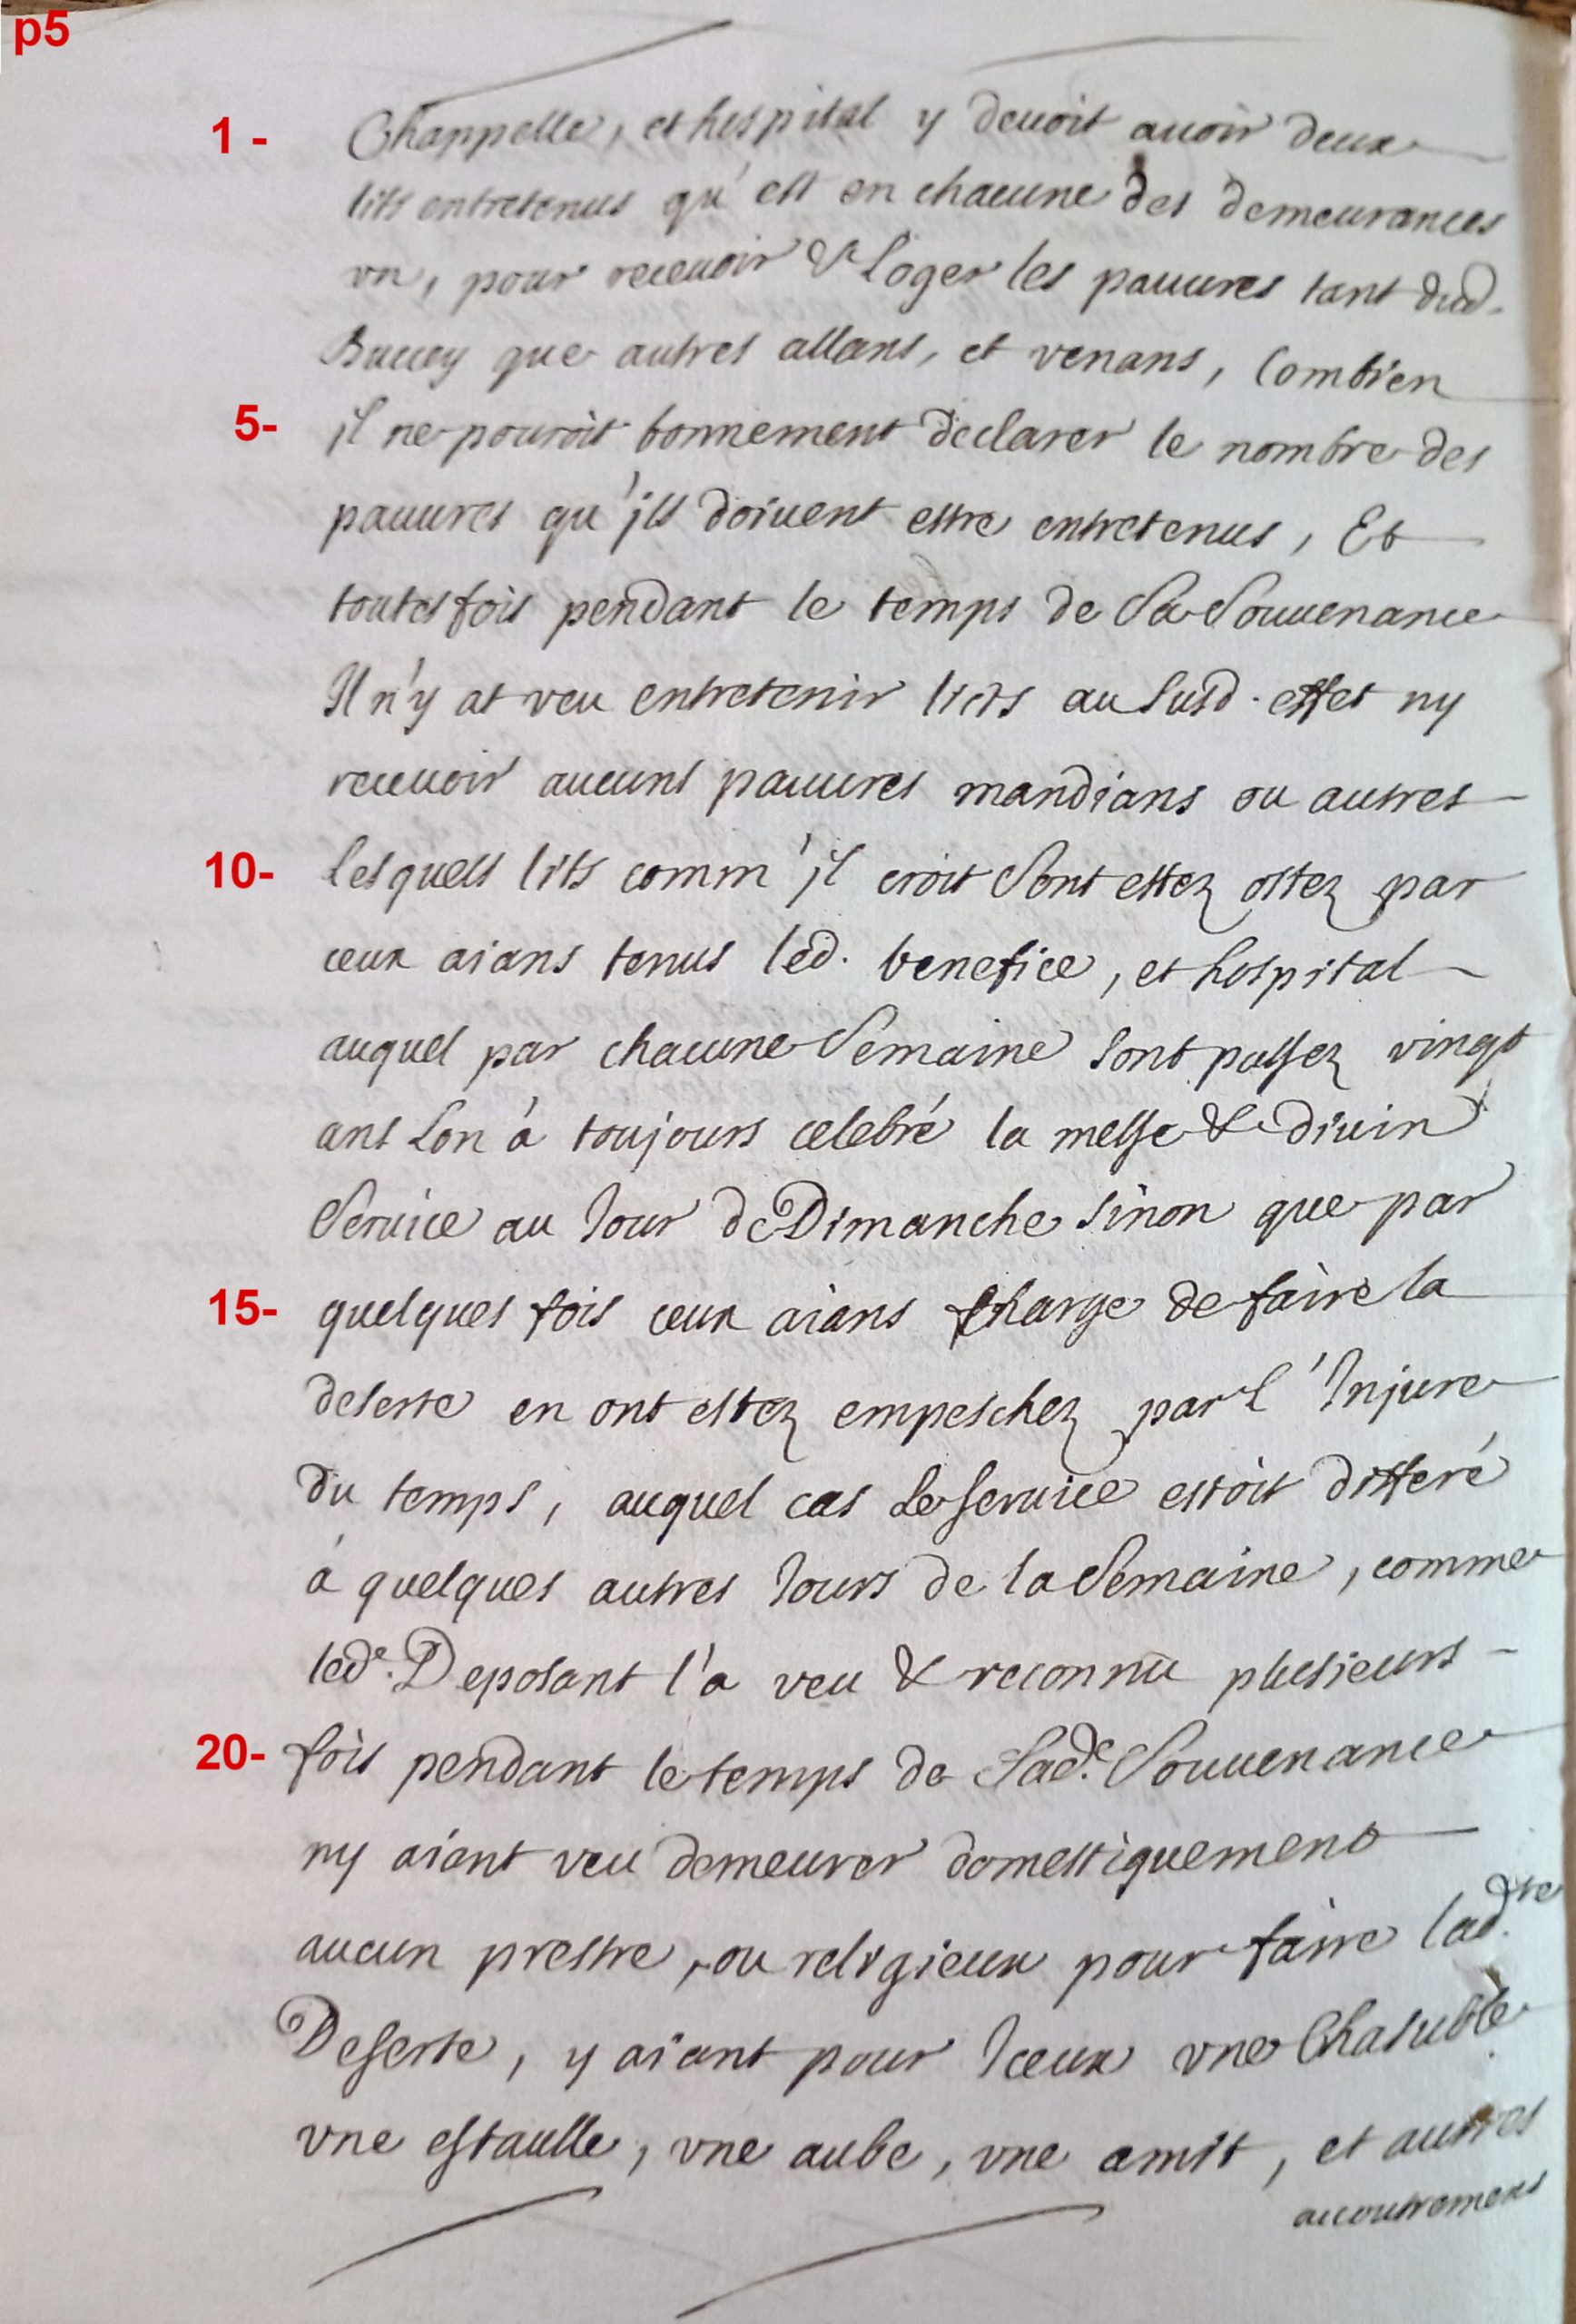 p5
1 - Chappelle, et hospital y deuoit auoir deux
lits entretenus qu'est en chacune des demeurances
vn, pour receuoir & Loger les pauures tant dud.
Bucey que autres allans, et venans, Combien
5- il ne pouroit bonnement declarer le nombre des
pauures qu'ils doiuent estre entretenus, Et
toutesfois pendant le temps de Sa Souuenance
Il n'y at veu entretenir licts au Susd. effet ny
receuoir aucuns pauures mandians ou autres
10- Lesquels lits comm'il croit Sont estez ostez par
ceux aians tenus led. benefice, et hospital
auquel par chacune Semaine Sont passez vingt
ans Lon à toujours celebré la messe & diuin
Seruice au Jour de Dimanche Sinon que par
15- quelques fois ceux aians Charge de faire la
deserte en ont estez empeschez par l'Injure
du temps, auquel cas Le Seruice estoit differé
à quelques autres Jours de la Semaine, comme
led.e Deposant l'a veu & reconnu plusieurs
20- fois pendant le temps de Sad.e Souuenance
ny aiant veu demeurer domestiquement
aucun prestre, ou religieux pour faire lad.te
Deserte, y aiant pour Iceux vne Chasuble
vne estaulle, vne aube, vne amit, et autres
accoutremens